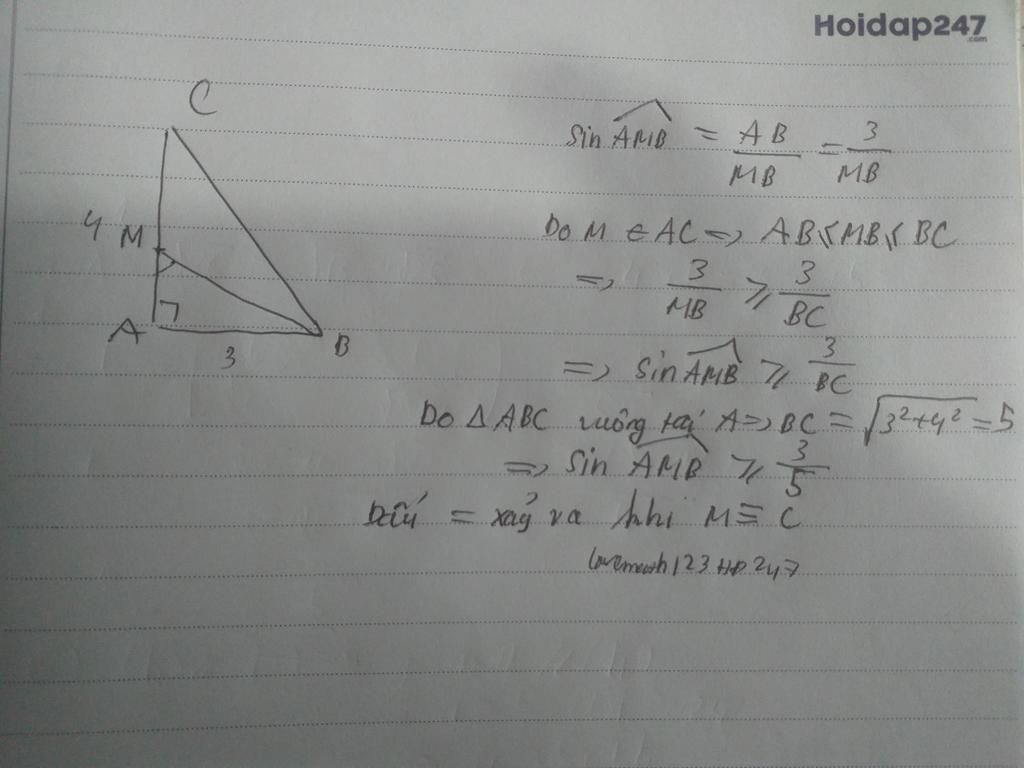 Hoidap247
.com
C
4 M
A
3
B
Sin AMB = AB/MB = 3/MB
Do M ∈ AC => AB ≤ MB ≤ BC
=> 3/MB ≥ 3/BC
=> Sin AMB ≥ 3/BC
Do Δ ABC vuông tại A => BC = √(3²+4²) = 5
=> Sin AMB ≥ 3/5
Dấu = xảy ra khi M ≡ C